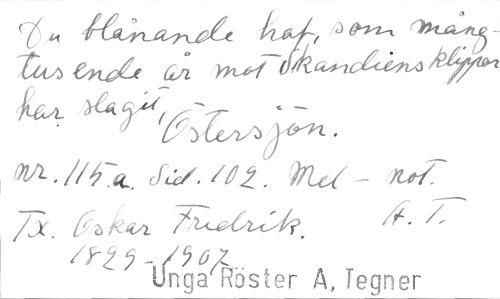 Du blånande haf, som mång-
tusende år mot Skandiens klippor
har slagit,
Östersjön.
nr. 115.a. Sid. 102. Mel - not.
Tx. Oskar Fredrik. A. T.
1829-1907
Unga Röster A, Tegner